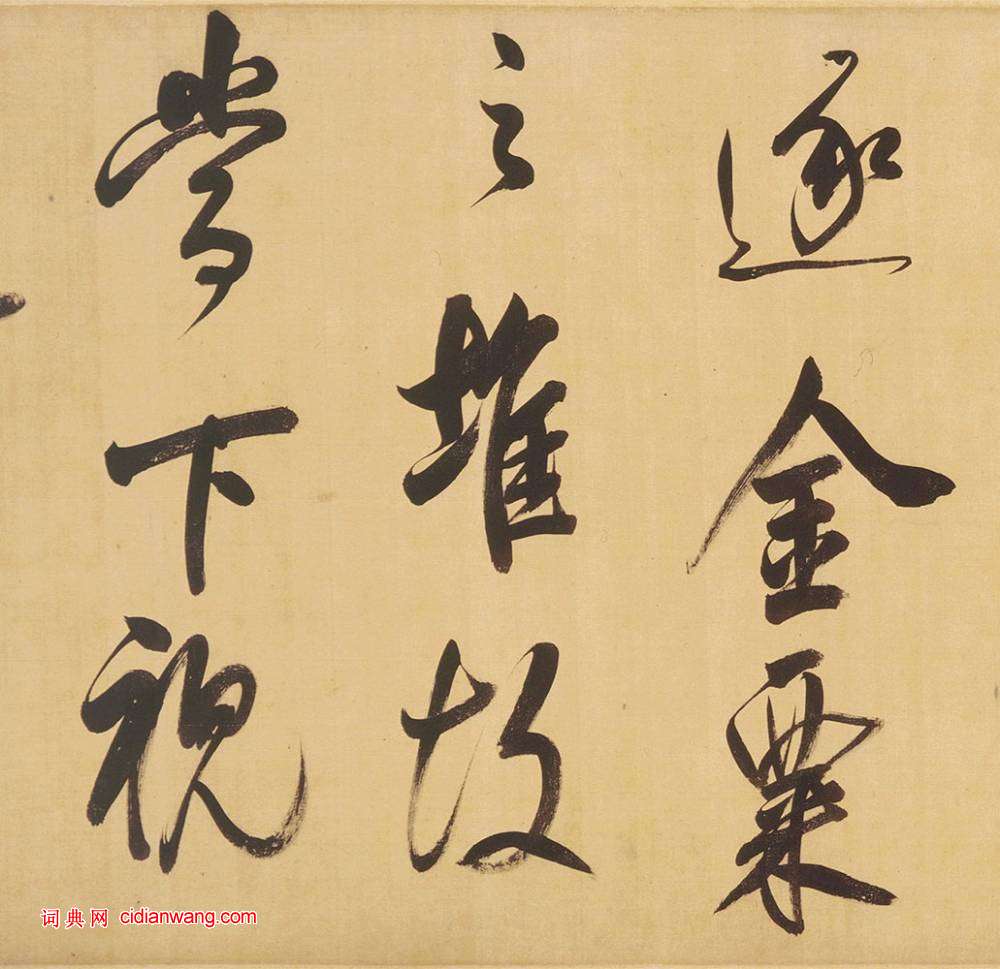 逐金粟
之堆故
當下視
词典网 cidianwang.com